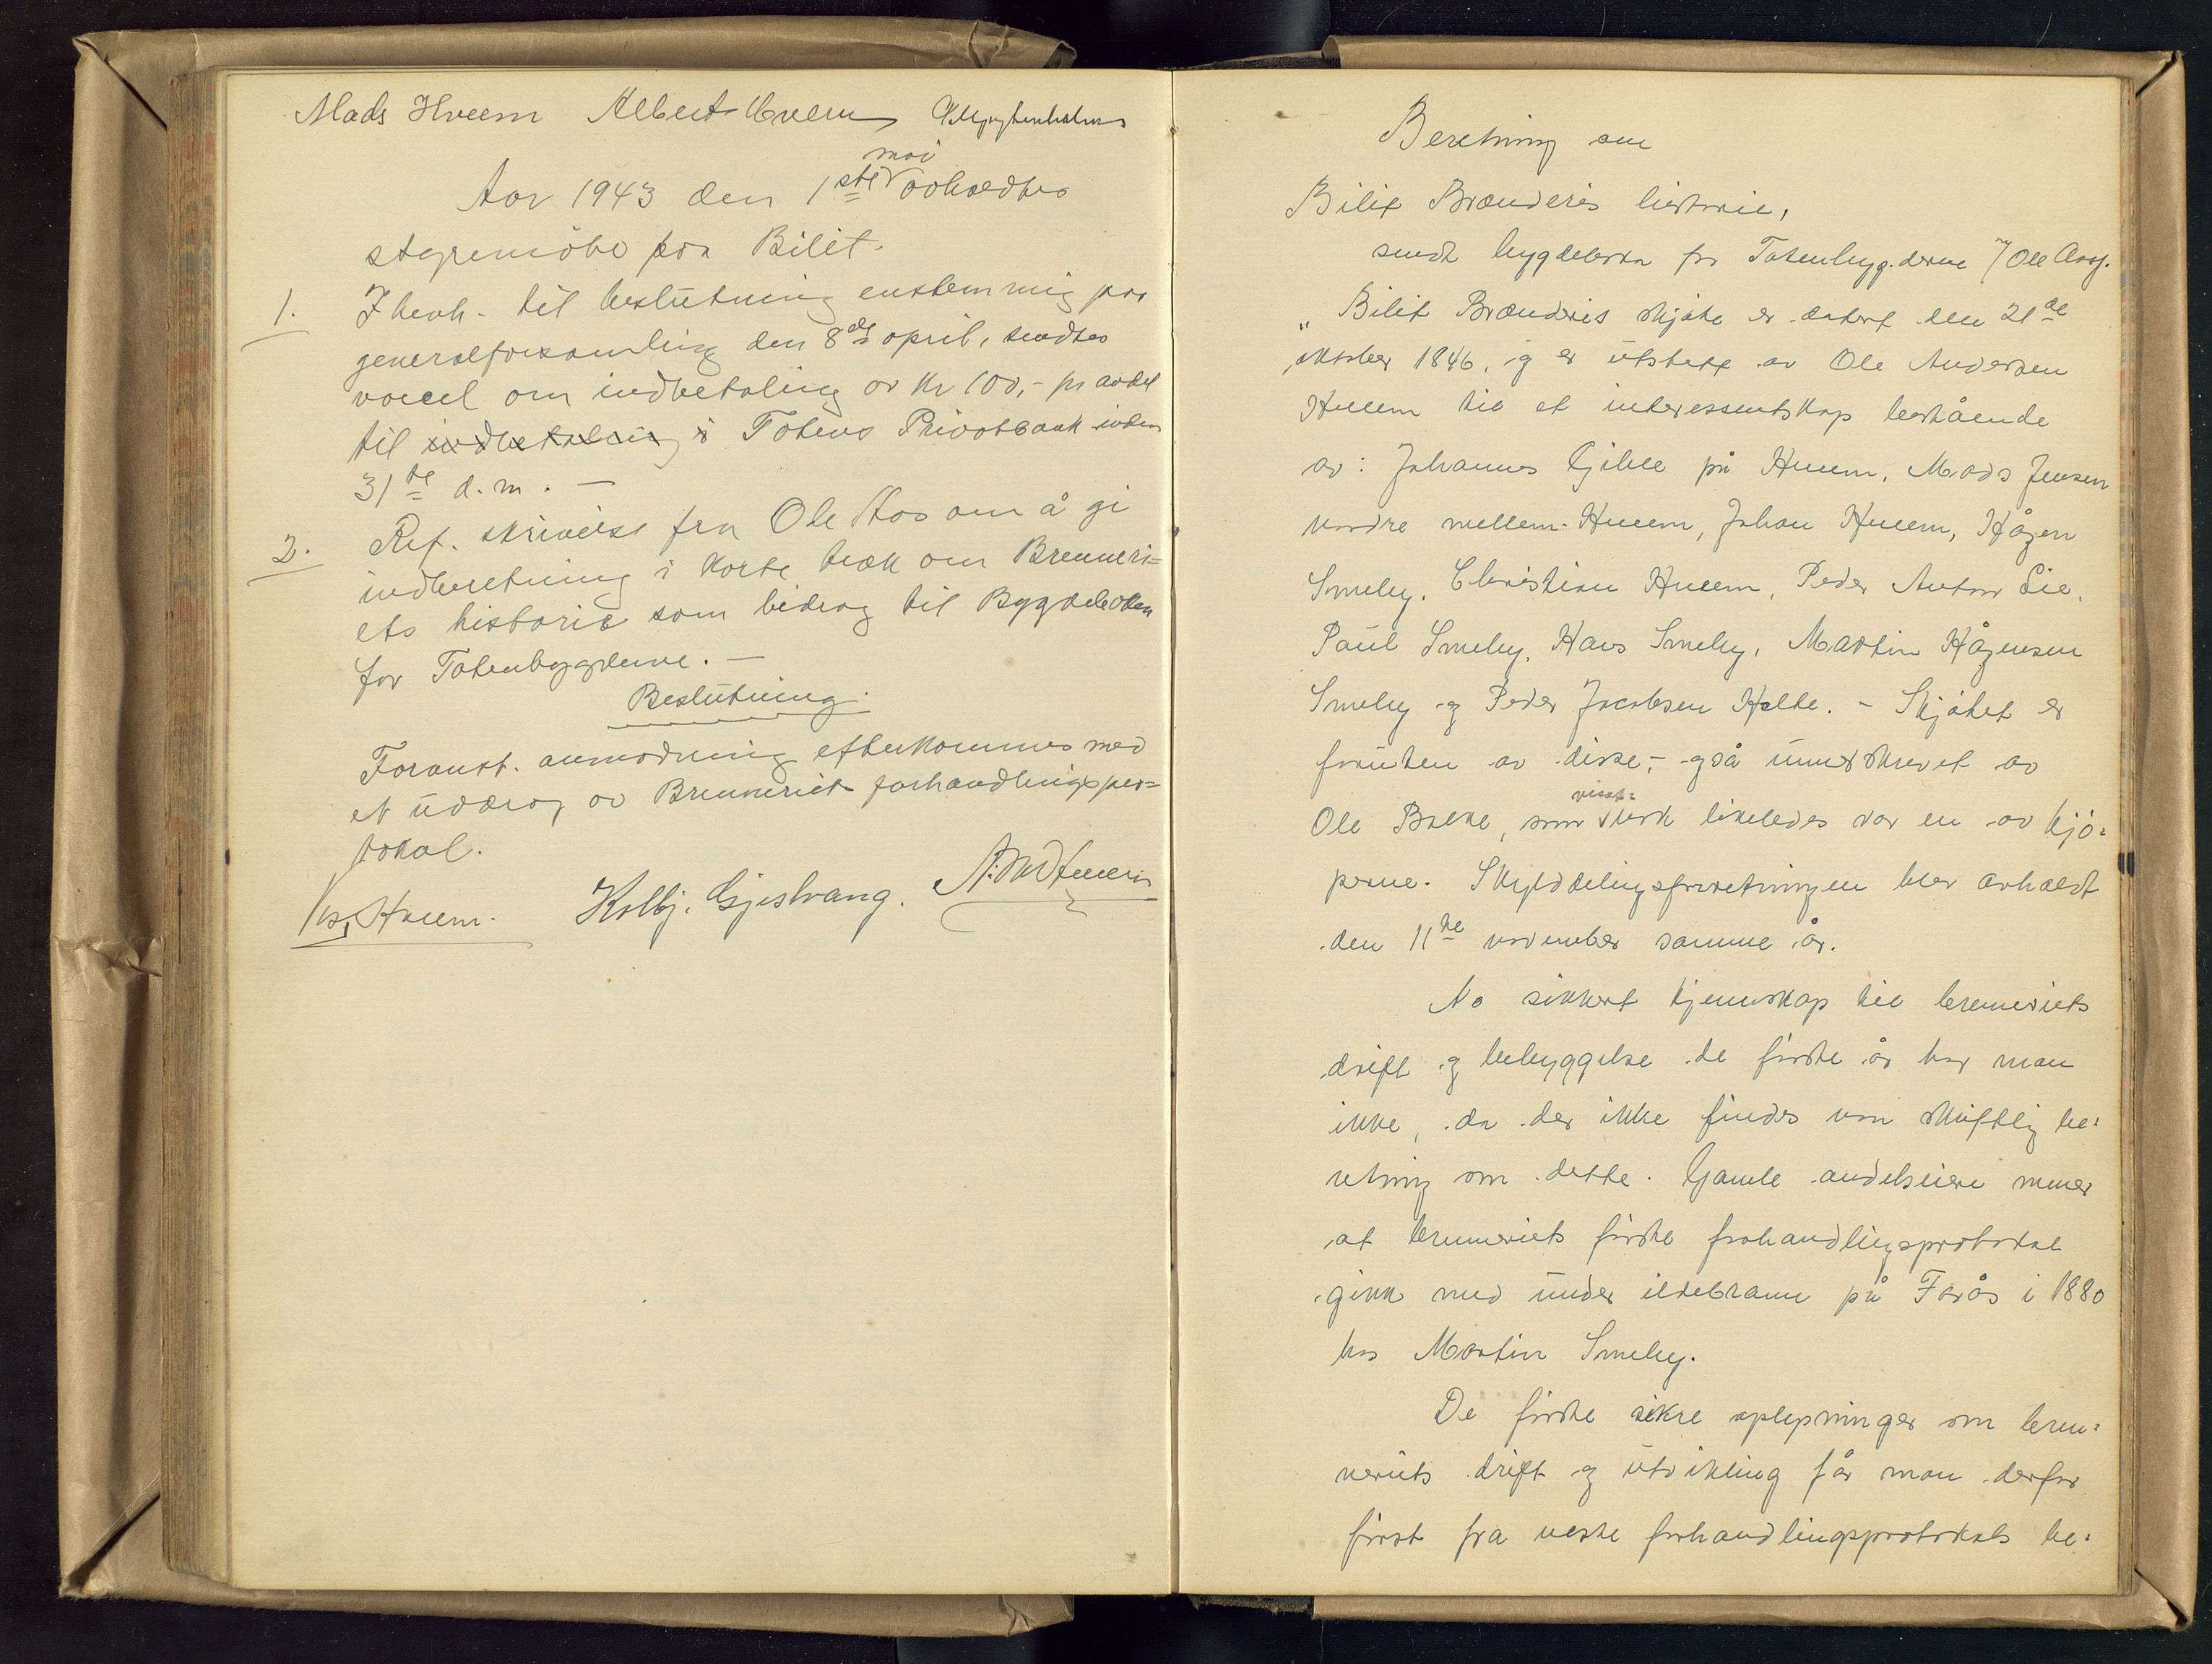 Mads Hveem Albert Hveem
mai
Aar 1943 den 1ste avholdtes
styremöte paa Bilit.
1. I henh. til beslutning enstemmig paa
generalforsamling den 8de april, sendtes
varsel om indbetaling av Kr 100,- pr andel
til indbetaling i Totens Privatbank inden
31te d.m. —
2. Ref. skrivelse fra Ole Aas om å gi
indberetning i korte træk om Brenneri=
ets historie som bidrag til Bygdeboken
for Totenbygdene. —
Beslutning.
Foranst. anmodning efterkommes med
et utdrag av Brenneriets forhandlingspro=
tokol.
Hveem. Kolbj. Gjestvang.
Beretning om
Bilit Brænderis historie,
sendt bygdeboka for Totenbygderne v/ Ole Aas.
„Bilit Brænderis skjöte er datert den 21de
oktober 1846, og er utstett av Ole Andersen
Hveem til et interessentskap bestående
av: Johannes Gjille på Hveem, Mads Jensen
nordre mellem-Hveem, Johan Hveem, Hågen
Smeby, Christian Hveem, Peder Anton Lie,
Paul Smeby, Hans Smeby, Martin Hågensen
Smeby og Peder Jacobsen Holte. – Skjötet er
foruten av disse, – også underskrevet av
Ole Balke, som visst= nok likeledes var en av kjö=
perne. Skylddelingsforretningen blev avholdt
den 11te november samme år.
No sikkert kjennskap til brenneriets
drift og bebyggelse de förste år har man
ikke, da der ikke findes non skriftlig be=
retning om dette. Gamle andelseiere mener
at brenneriets förste forhandlingsprotokol
gikk med under ildebrann på Farås i 1880
hos Martin Smeby.
De förste sikre oplysninger om bren=
neriets drift og utvikling får man derfor
först fra neste forhandlingsprotokols be=